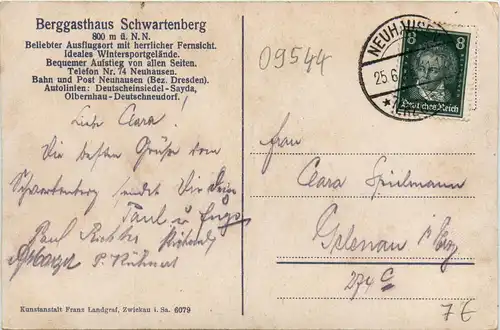 Berggasthaus Schwartenberg
800 m ü. N. N.
Beliebter Ausflugsort mit herrlicher Fernsicht.
Ideales Wintersportgelände.
Bequemer Aufstieg von allen Seiten.
Telefon Nr. 74 Neuhausen.
Bahn und Post Neuhausen (Bez. Dresden).
Autolinien: Deutscheinsiedel-Sayda,
Olbernhau-Deutschneudorf.
Liebe Clara!
Die besten Grüße vom
Schwartenberg sendet Dir Deine
Paul u
Paul
P. Kühnert
Kunstanstalt Franz Landgraf, Zwickau i. Sa. 6079
09544
NEUHAUSEN
25.6
8 8
Deutsches Reich
Frau
Clara Spielmann
Gelenau
274 C
7 €